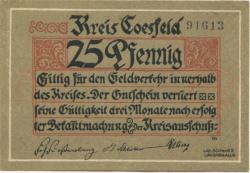 Kreis Coesfeld
91613
25 Pfennig
Giltig für den Geldverkehr innerhalb
des Kreises. Der Gutschein verliert
seine Gültigkeit drei Monate nach erfolg
ter Bekanntmachung. Der Kreisausschuß: